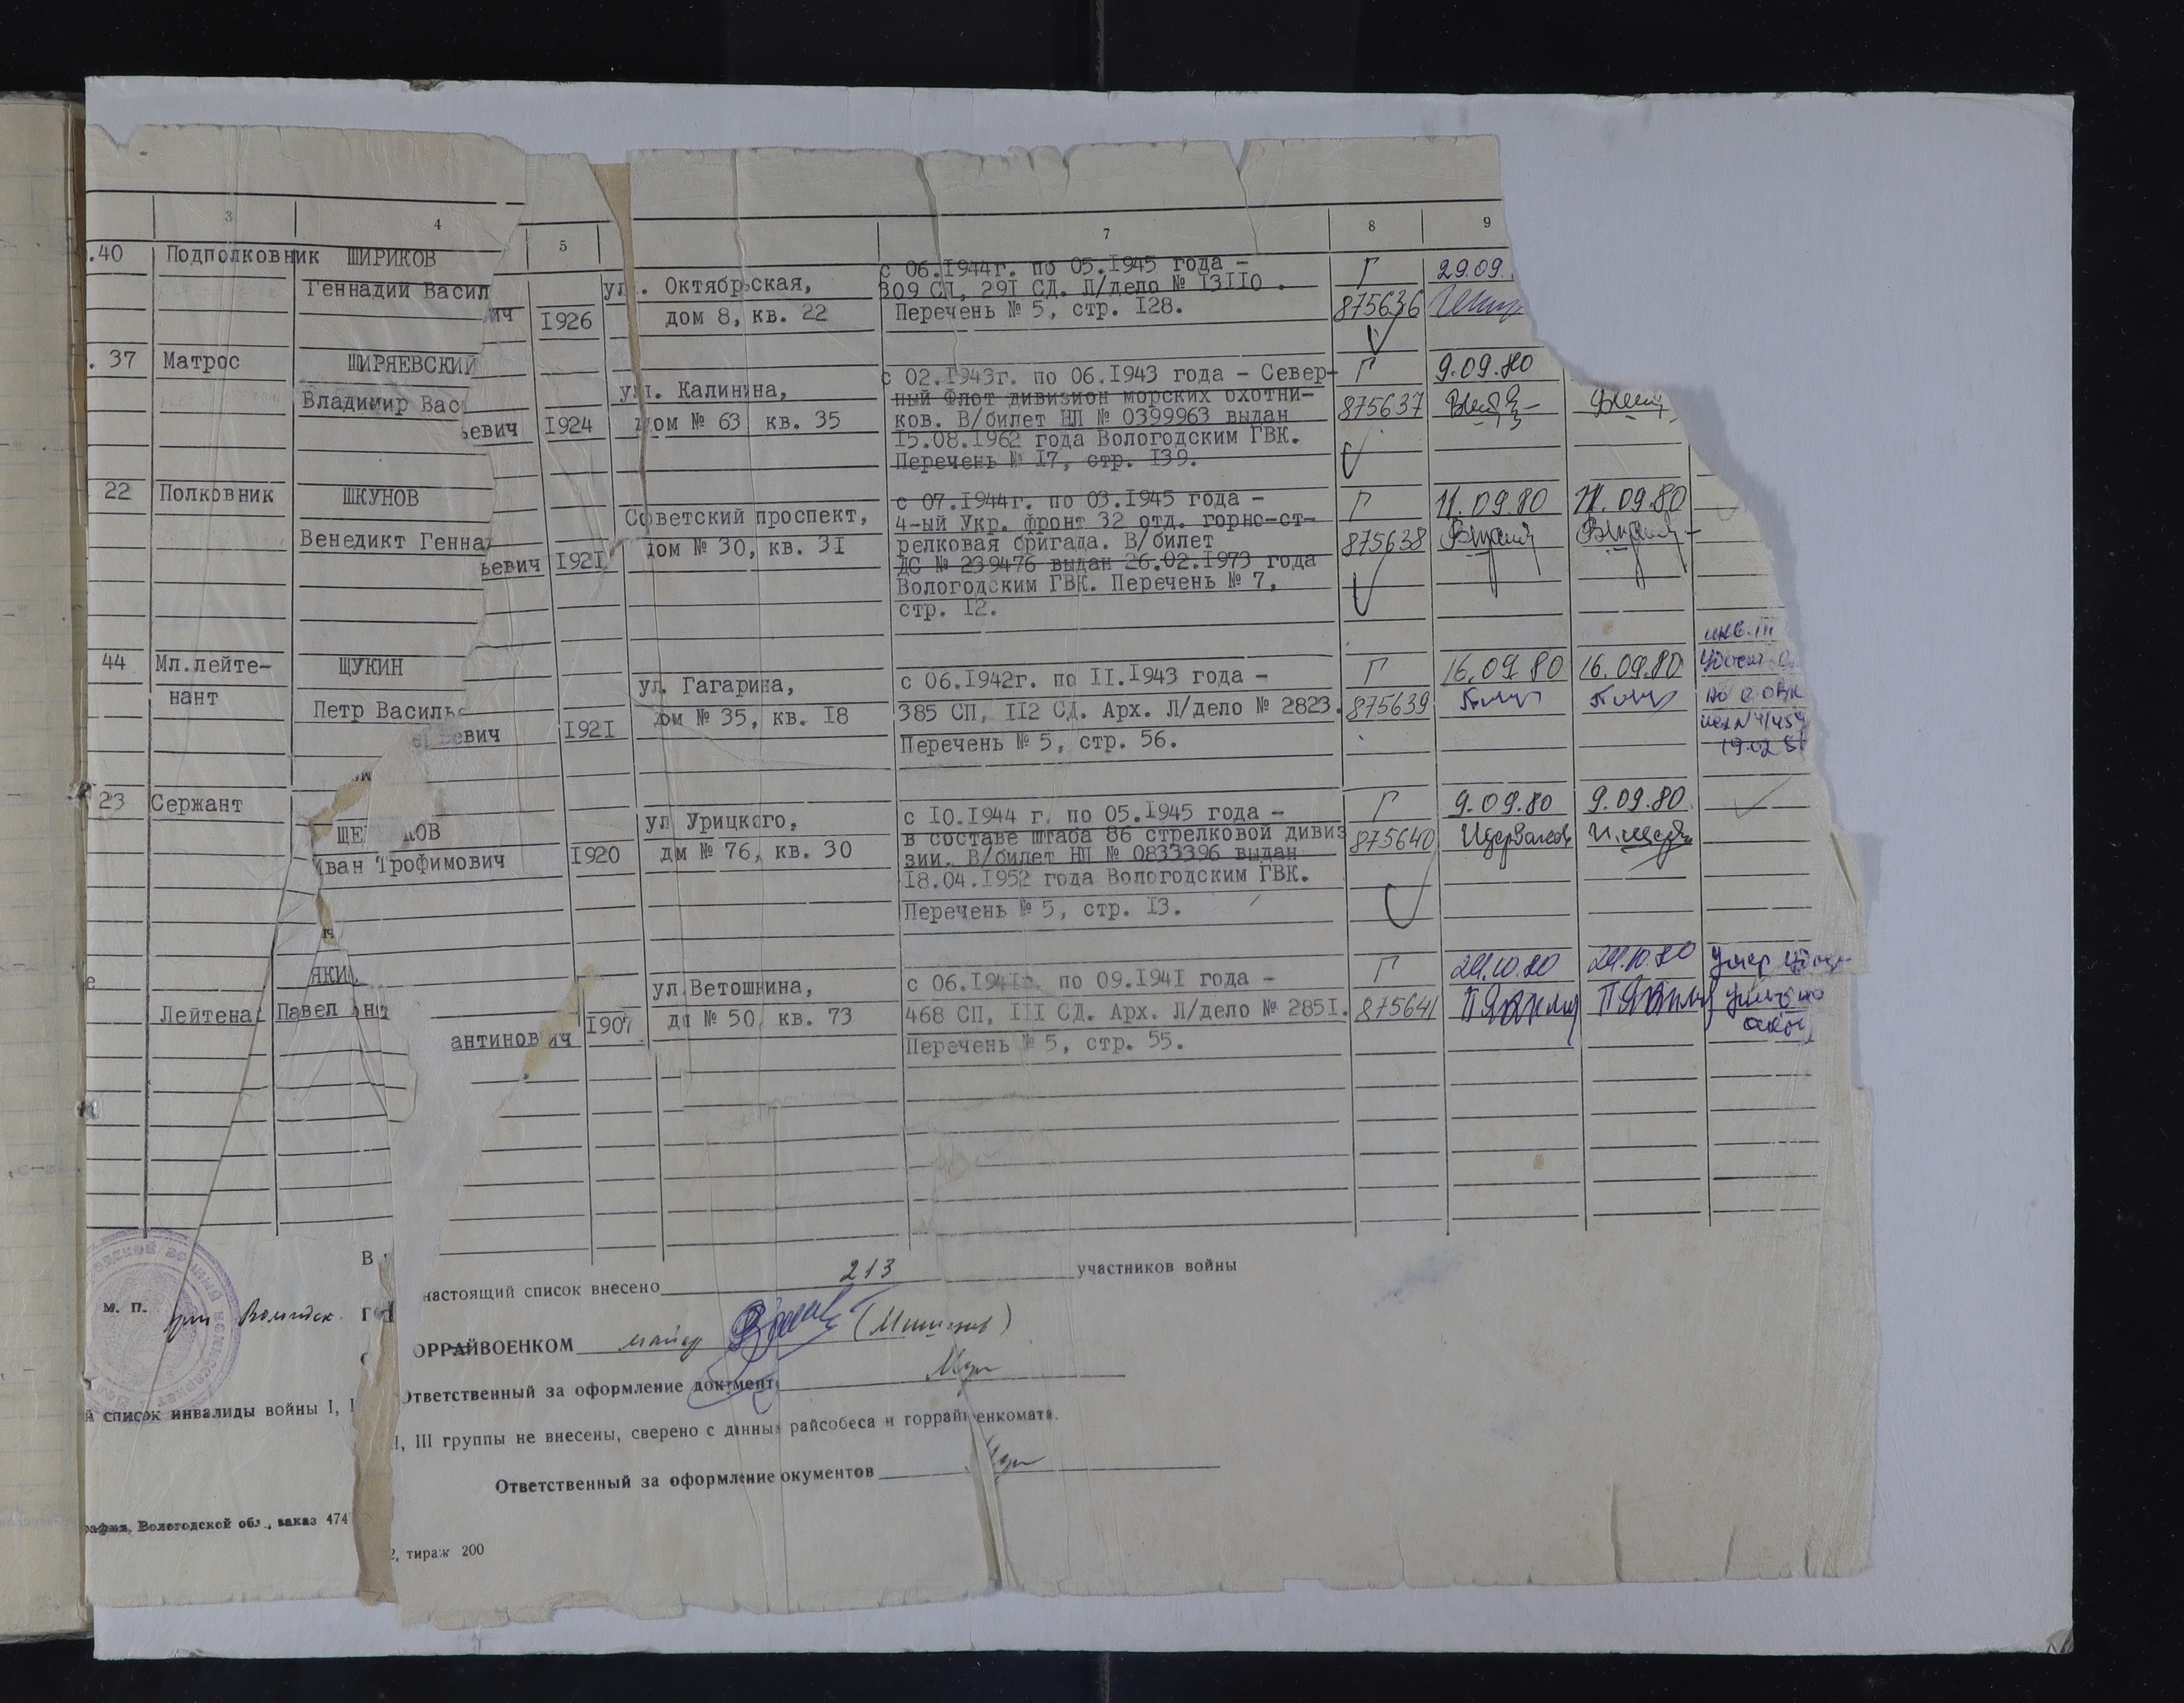 3 4 5 7 8 9
.40 Подполковник ШИРИКОВ с 06.1944г. по 05.1945 года – Г 29.09.
Геннадий Васил ул. Октябрьская, 309 СП, 291 СД. Л/дело № 13110.
ич 1926 дом 8, кв. 22 Перечень № 5, стр. 128. 875636
. 37 Матрос ШИРЯЕВСКИЙ с 02.1943г. по 06.1943 года – Север- Г 9.09.80
ул. Калинина, ный Флот дивизион морских охотни-
Владимир Вас ков. В/билет НП № 0399963 выдан 875637
ьевич 1924 дом № 63 кв. 35 15.08.1962 года Вологодским ГВК.
Перечень № 17, стр. 139.
22 Полковник ШКУНОВ с 07.1944г. по 03.1945 года – Г 11.09.80 11.09.80
Советский проспект, 4-ый Укр. фронт 32 отд. горно-ст-
Венедикт Генна дом № 30, кв. 31 релковая бригада. В/билет 875638
ьевич 1921 ДС № 239476 выдан 26.02.1973 года
Вологодским ГВК. Перечень № 7,
стр. 12.
инв. III
44 Мл.лейте- ЩУКИН ул. Гагарина, с 06.1942г. по 11.1943 года – Г 16.09.80 16.09.80
нант Петр Василье дом № 35, кв. 18 385 СП, 112 СД. Арх. Л/дело № 2823. 875639
евич 1921 Перечень № 5, стр. 56.
19.02.81
23 Сержант с 10.1944 г. по 05.1945 года – Г 9.09.80 9.09.80
ЩЕ КОВ ул Урицкого, в составе штаба 86 стрелковой дивиз
Иван Трофимович 1920 дм № 76, кв. 30 зии. В/билет НП № 0833396 выдан 875640
18.04.1952 года Вологодским ГВК.
Перечень № 5, стр. 13.
е ЯКИ ул.Ветошкина, с 06.1941г. по 09.1941 года – Г 24.10.80 24.10.80 Умер
Лейтена Павел ант до № 50 кв. 73 468 СП, 111 СД. Арх. Л/дело № 2851. 875641
антинович 1907 Перечень № 5, стр. 55.
В настоящий список внесено 213 участников войны
м. п. Вологодск. го
ОРРАЙВОЕНКОМ майор
Ответственный за оформление документ
й список инвалиды войны I, I
II, III группы не внесены, сверено с данны райсобеса и горрай енкомата.
Ответственный за оформление окументов
рафия, Вологодской обл., заказ 474
2, тираж 200